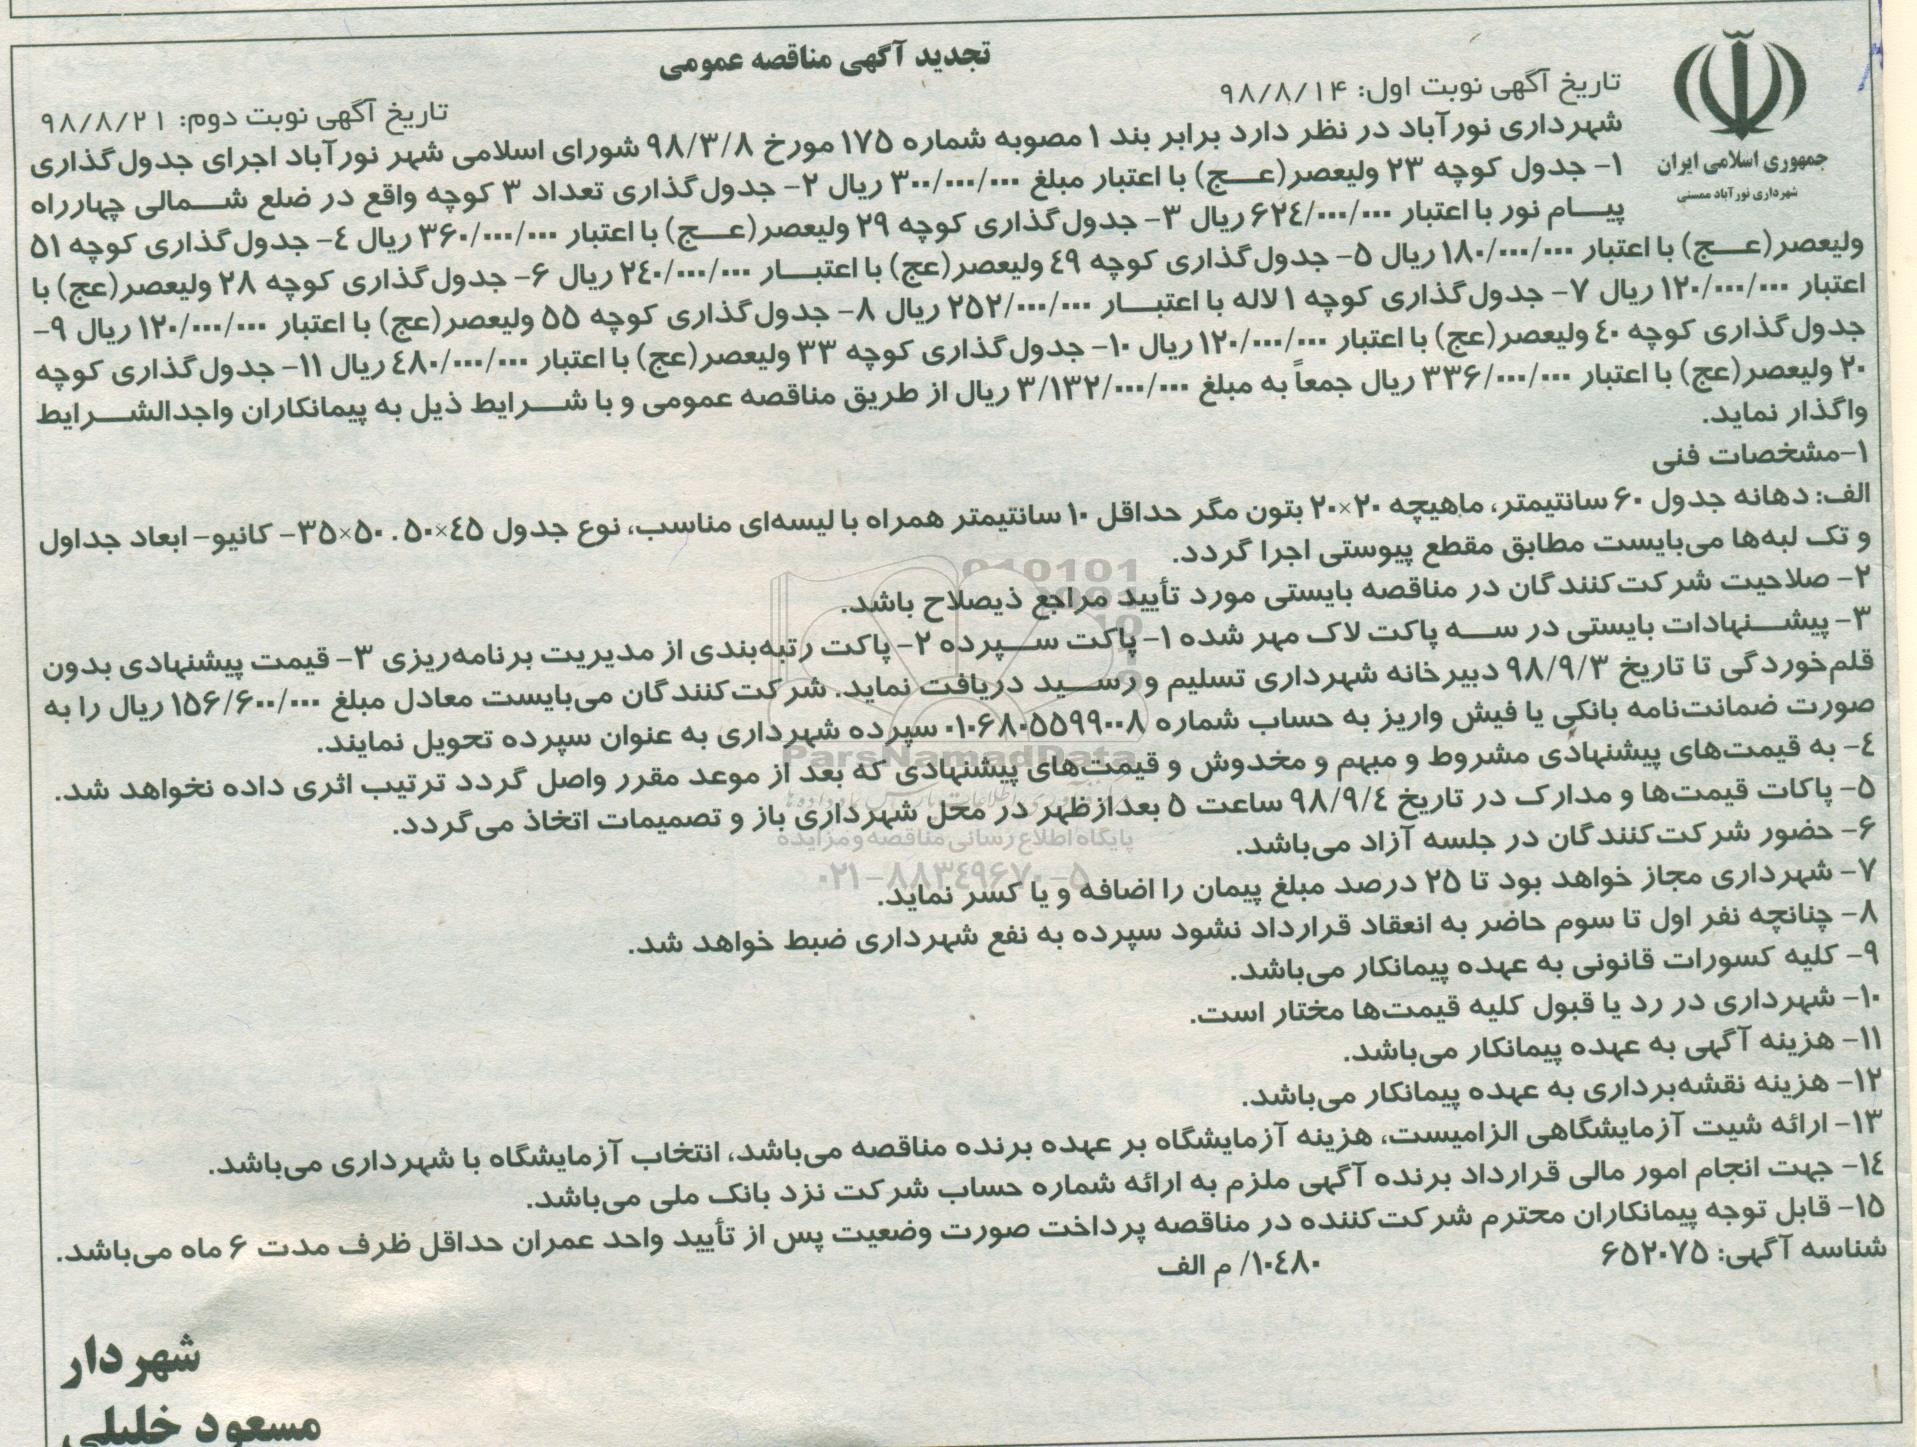 تجدید آگهی مناقصه عمومی
جمهوری اسلامی ایران
شهرداری نورآباد ممسنی
تاریخ آگهی نوبت اول: ۹۸/۸/۱۴
تاریخ آگهی نوبت دوم: ۹۸/۸/۲۱
شهرداری نورآباد در نظر دارد برابر بند ۱ مصوبه شماره ۱۷۵ مورخ ۹۸/۳/۸ شورای اسلامی شهر نورآباد اجرای جدول‌گذاری
۱- جدول کوچه ۲۳ ولیعصر(عج) با اعتبار مبلغ ۳۰۰/۰۰۰/۰۰۰ ریال ۲- جدول‌گذاری تعداد ۳ کوچه واقع در ضلع شمالی چهارراه
پیام نور با اعتبار ۶۲۴/۰۰۰/۰۰۰ ریال ۳- جدول‌گذاری کوچه ۲۹ ولیعصر(عج) با اعتبار ۳۶۰/۰۰۰/۰۰۰ ریال ۴- جدول‌گذاری کوچه ۵۱
ولیعصر(عج) با اعتبار ۱۸۰/۰۰۰/۰۰۰ ریال ۵- جدول‌گذاری کوچه ۴۹ ولیعصر(عج) با اعتبار ۲۴۰/۰۰۰/۰۰۰ ریال ۶- جدول‌گذاری کوچه ۲۸ ولیعصر(عج) با
اعتبار ۱۲۰/۰۰۰/۰۰۰ ریال ۷- جدول‌گذاری کوچه ۱ لاله با اعتبار ۲۵۲/۰۰۰/۰۰۰ ریال ۸- جدول‌گذاری کوچه ۵۵ ولیعصر(عج) با اعتبار ۱۲۰/۰۰۰/۰۰۰ ریال ۹-
جدول‌گذاری کوچه ۴۰ ولیعصر(عج) با اعتبار ۱۲۰/۰۰۰/۰۰۰ ریال ۱۰- جدول‌گذاری کوچه ۳۳ ولیعصر(عج) با اعتبار ۴۸۰/۰۰۰/۰۰۰ ریال ۱۱- جدول‌گذاری کوچه
۲۰ ولیعصر(عج) با اعتبار ۳۳۶/۰۰۰/۰۰۰ ریال جمعاً به مبلغ ۳/۱۳۲/۰۰۰/۰۰۰ ریال از طریق مناقصه عمومی و با شرایط ذیل به پیمانکاران واجدالشرایط
واگذار نماید.
۱-مشخصات فنی
الف: دهانه جدول ۶۰ سانتیمتر، ماهیچه ۲۰×۲۰ بتون مگر حداقل ۱۰ سانتیمتر همراه با لیسه‌ای مناسب، نوع جدول ۴۵×۵۰. ۵۰×۳۵- کانیو- ابعاد جداول
و تک لبه‌ها می‌بایست مطابق مقطع پیوستی اجرا گردد.
۲- صلاحیت شرکت‌کنندگان در مناقصه بایستی مورد تأیید مراجع ذیصلاح باشد.
۳- پیشنهادات بایستی در سه پاکت لاک مهر شده ۱- پاکت سپرده ۲- پاکت رتبه‌بندی از مدیریت برنامه‌ریزی ۳- قیمت پیشنهادی بدون
قلم‌خوردگی تا تاریخ ۹۸/۹/۳ دبیرخانه شهرداری تسلیم و رسید دریافت نماید. شرکت‌کنندگان می‌بایست معادل مبلغ ۱۵۶/۶۰۰/۰۰۰ ریال را به
صورت ضمانت‌نامه بانکی یا فیش واریز به حساب شماره ۰۱۰۶۸۰۵۵۹۹۰۰۸ سپرده شهرداری به عنوان سپرده تحویل نمایند.
۴- به قیمت‌های پیشنهادی مشروط و مبهم و مخدوش و قیمت‌های پیشنهادی که بعد از موعد مقرر واصل گردد ترتیب اثری داده نخواهد شد.
۵- پاکات قیمت‌ها و مدارک در تاریخ ۹۸/۹/۴ ساعت ۵ بعدازظهر در محل شهرداری باز و تصمیمات اتخاذ می‌گردد.
۶- حضور شرکت‌کنندگان در جلسه آزاد می‌باشد.
۷- شهرداری مجاز خواهد بود تا ۲۵ درصد مبلغ پیمان را اضافه و یا کسر نماید.
۸- چنانچه نفر اول تا سوم حاضر به انعقاد قرارداد نشود سپرده به نفع شهرداری ضبط خواهد شد.
۹- کلیه کسورات قانونی به عهده پیمانکار می‌باشد.
۱۰- شهرداری در رد یا قبول کلیه قیمت‌ها مختار است.
۱۱- هزینه آگهی به عهده پیمانکار می‌باشد.
۱۲- هزینه نقشه‌برداری به عهده پیمانکار می‌باشد.
۱۳- ارائه شیت آزمایشگاهی الزامیست، هزینه آزمایشگاه بر عهده برنده مناقصه می‌باشد، انتخاب آزمایشگاه با شهرداری می‌باشد.
۱۴- جهت انجام امور مالی قرارداد برنده آگهی ملزم به ارائه شماره حساب شرکت نزد بانک ملی می‌باشد.
۱۵- قابل توجه پیمانکاران محترم شرکت‌کننده در مناقصه پرداخت صورت وضعیت پس از تأیید واحد عمران حداقل ظرف مدت ۶ ماه می‌باشد.
شناسه آگهی: ۶۵۲۰۷۵
۱۰۴۸۰/ م الف
شهردار
مسعود خلیلی
ParsNamadData
پایگاه اطلاع رسانی مناقصه و مزایده
۰۲۱-۸۸۳۴۹۶۷۰-۵